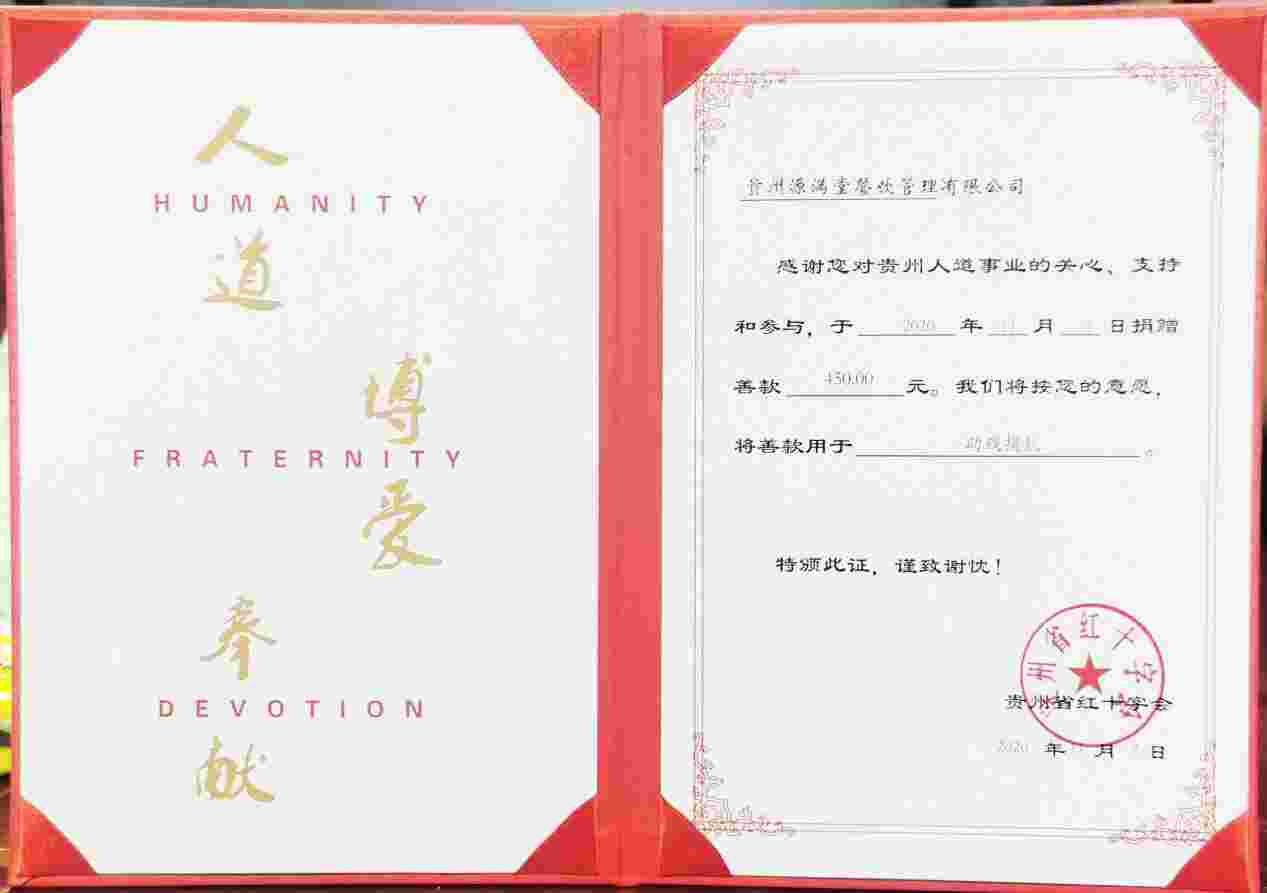 人
HUMANITY
道
博
FRATERNITY
爱
奉
DEVOTION
献
贵州源满堂餐饮管理有限公司
感谢您对贵州人道事业的关心、支持
和参与，于 2020 年 月 日捐赠
善款 450.00 元。我们将按您的意愿，
将善款用于 。
特颁此证，谨致谢忱！
贵州省红十字会
贵州省红十字会
2020 年 月 日